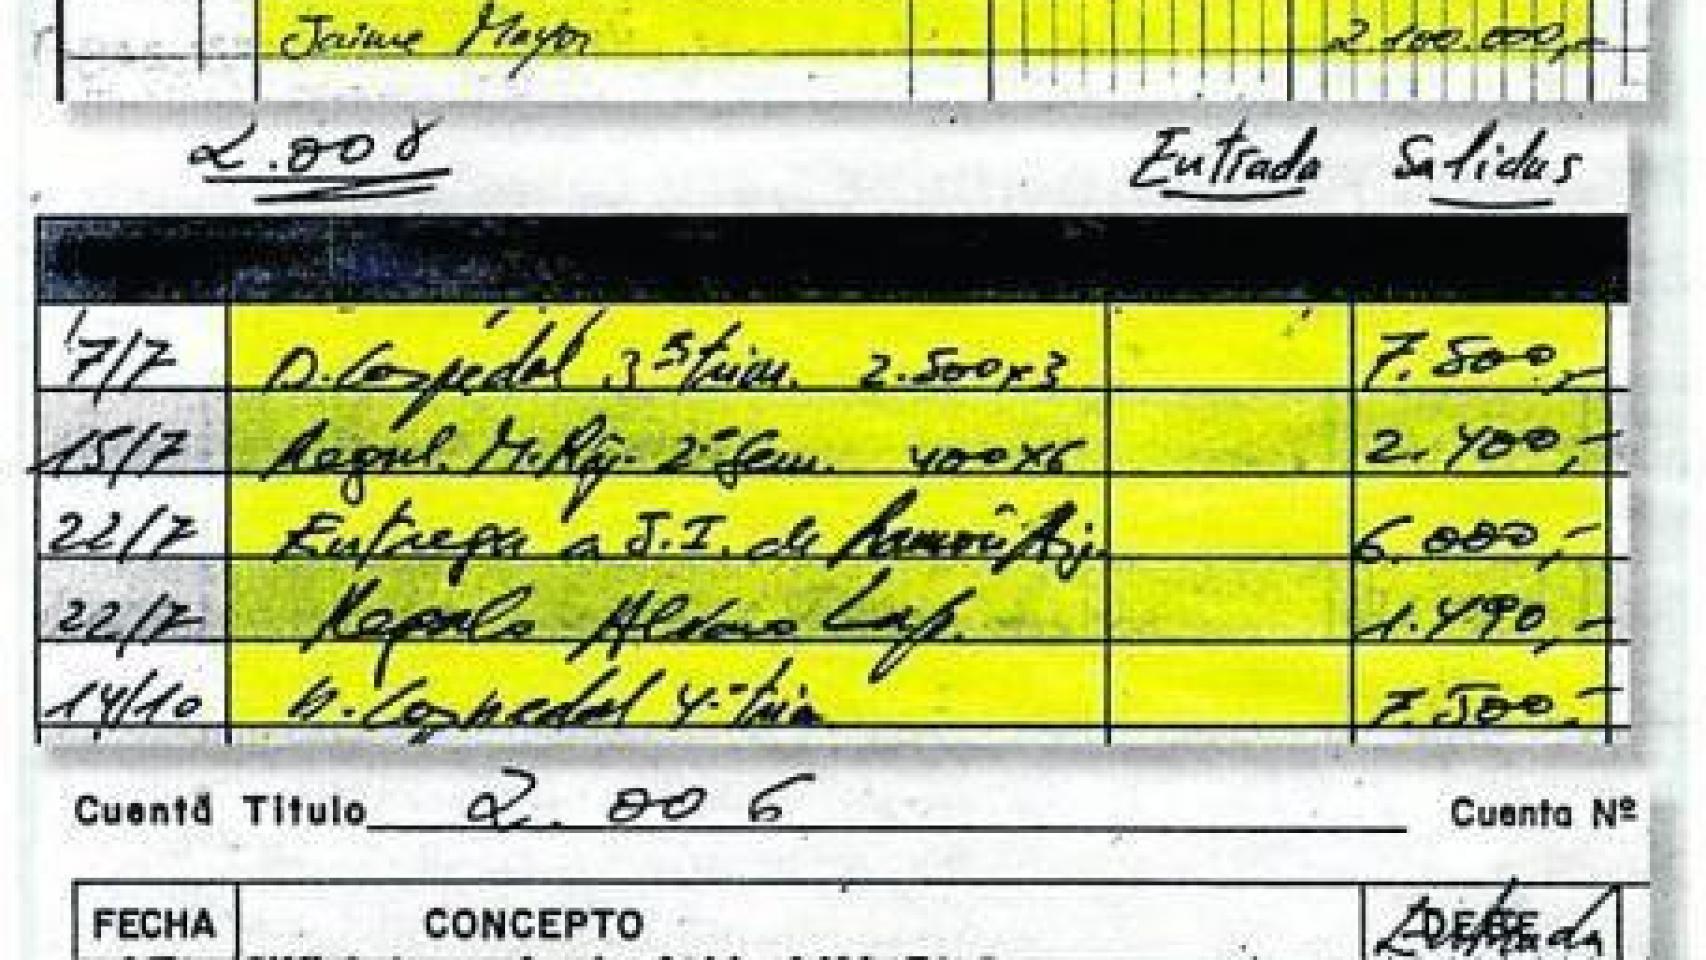 Jaime Mayor 2.100.000,-
2.008 Entrada Salidas
7/7 D. Cospedal 3º trim. 2.500x3 7.500,-
15/7 M. Raj. 2º Sem. 400x6 2.400,-
22/7 Entrega a J.I. de 6.000,-
22/7 Regalo Lap. 1.490,-
14/10 D. Cospedal 4º trim 7.500,-
Cuenta Titulo 2.006 Cuenta Nº
FECHA CONCEPTO DEBE Entrada